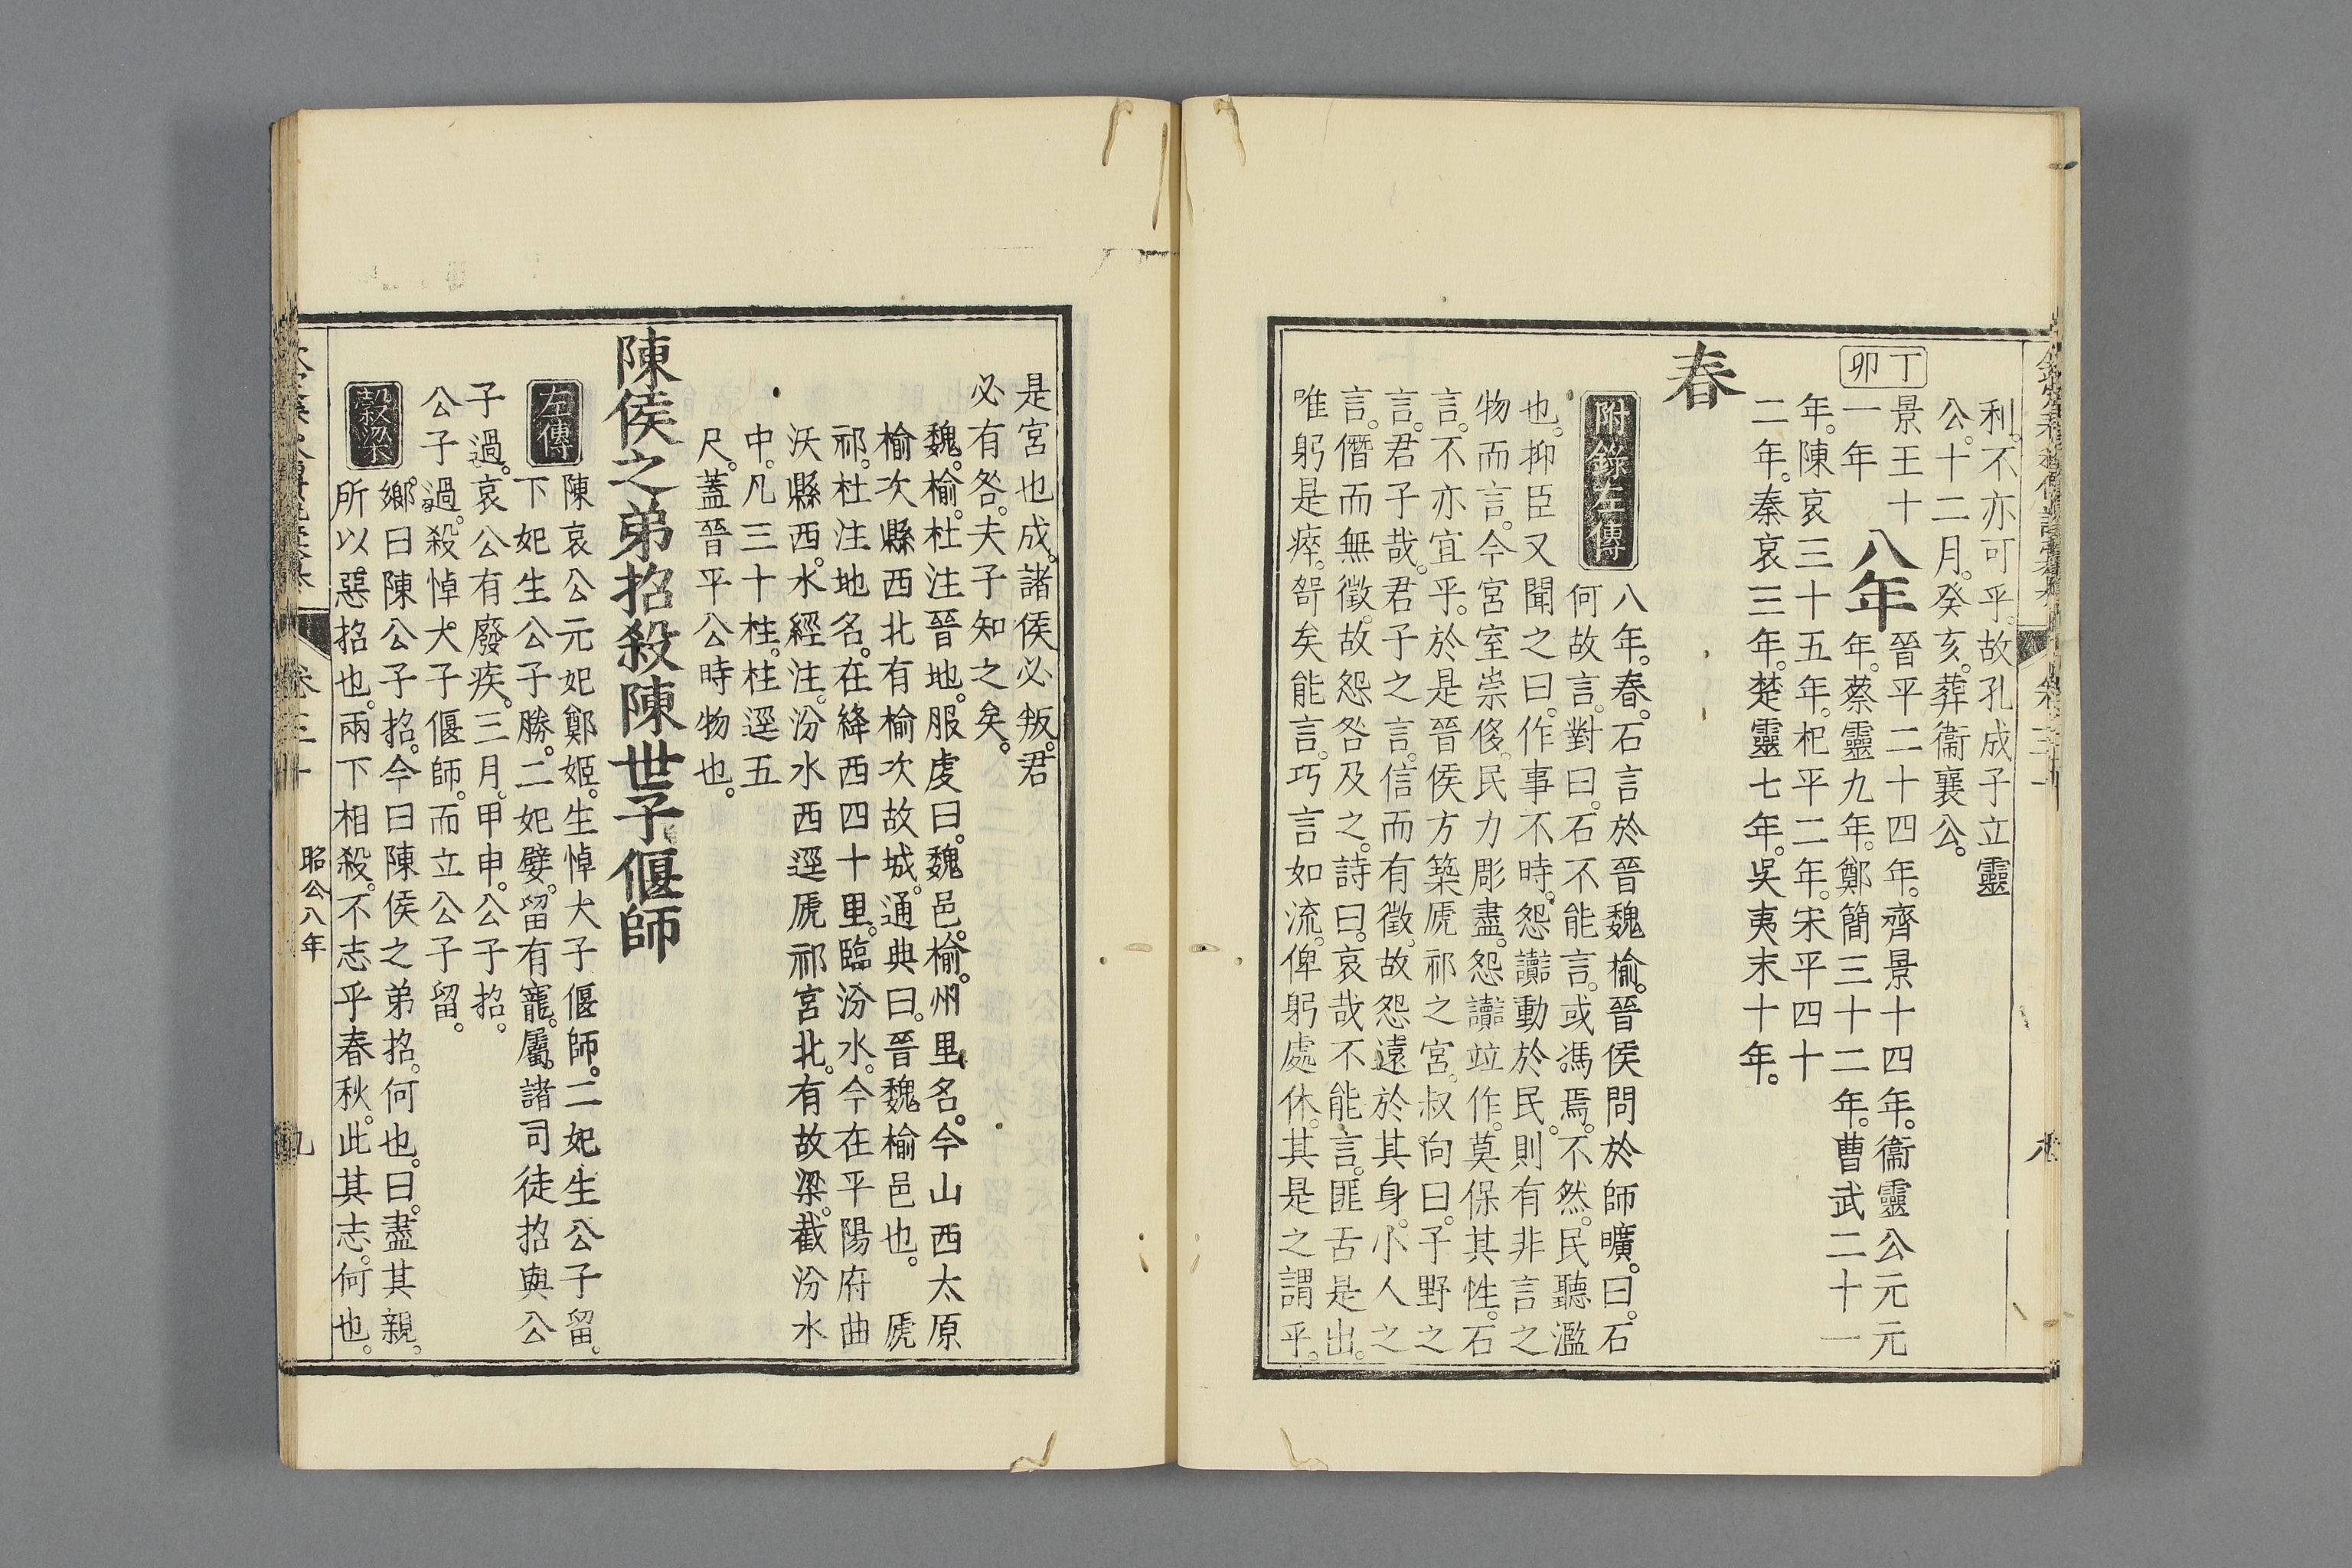 利。不亦可乎。故孔成子立靈
公。十二月。癸亥。葬衞襄公。
丁卯
景王十一年
八年
晉平二十四年。齊景十四年。衞靈公元元
年。蔡靈九年。鄭簡三十二年。曹武二十一
年。陳哀三十五年。杞平二年。宋平四十
二年。秦哀三年。楚靈七年。吳夷末十年。
春
附錄左傳
八年。春。石言於晉魏榆。晉侯問於師曠。曰。石
何故言。對曰。石不能言。或馮焉。不然。民聽濫
也。抑臣又聞之曰。作事不時。怨讟動於民。則有非言之
物而言。今宮室崇侈。民力彫盡。怨讟竝作。莫保其性。石
言。不亦宜乎。於是晉侯方築虒祁之宮。叔向曰。子野之
言。君子哉。君子之言。信而有徵。故怨遠於其身。小人之
言。僭而無徵。故怨咎及之。詩曰。哀哉不能言。匪舌是出。
唯躬是瘁。哿矣能言。巧言如流。俾躬處休。其是之謂乎。
是宮也成。諸侯必叛。君
必有咎。夫子知之矣。
魏榆。杜注晉地。服虔曰。魏邑。榆。州里名。今山西太原
榆次縣西北有榆次故城。通典曰。晉魏榆邑也。 虒
祁。杜注地名。在絳西四十里。臨汾水。今在平陽府曲
沃縣西。水經注。汾水西逕虒祁宮北。有故梁。截汾水
中。凡三十柱。柱逕五
尺。蓋晉平公時物也。
陳侯之弟招殺陳世子偃師
左傳
陳哀公元妃鄭姬。生悼大子偃師。二妃生公子留。
下妃生公子勝。二妃嬖。留有寵。屬諸司徒招與公
子過。哀公有廢疾。三月。甲申。公子招。
公子過。殺悼大子偃師。而立公子留。
穀梁
鄉曰陳公子招。今曰陳侯之弟招。何也。曰。盡其親。
所以惡招也。兩下相殺。不志乎春秋。此其志。何也。
卷三十
昭公八年
九